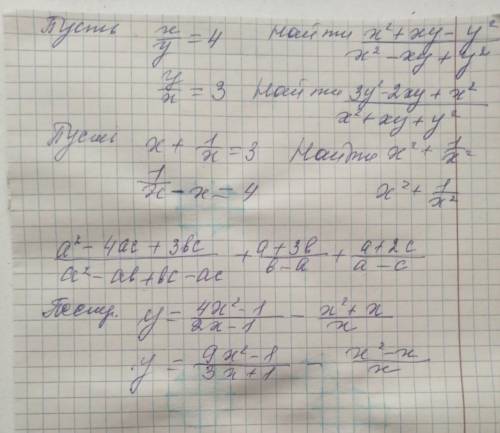 Пусть x/y = 4 Найти (x² + xy - y²)/(x² - xy + y²)
y/x = 3 Найти (3y² - 2xy + x²)/(x² + xy + y²)
Пусть x + 1/x = 3 Найти x² + 1/x²
1/x - x = 4 x² + 1/x²
(a² - 4ac + 3bc)/(a² - ab + bc - ac) + (a + 3b)/(b - a) + (a + 2c)/(a - c)
Постр. y = (4x² - 1)/(2x - 1) - (x² + x)/x
y = (9x² - 1)/(3x + 1) - (x² - x)/x